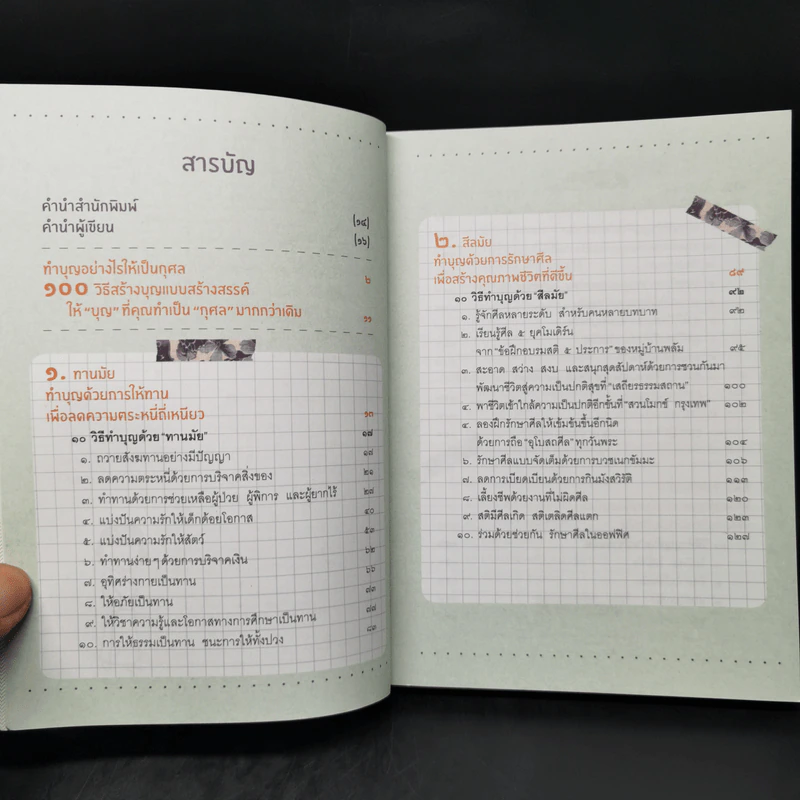 สารบัญ
คำนำสำนักพิมพ์ (๑๔)
คำนำผู้เขียน (๑๖)
ทำบุญอย่างไรให้เป็นกุศล ๒
๑๐๐ วิธีสร้างบุญแบบสร้างสรรค์
ให้ “บุญ” ที่คุณทำเป็น “กุศล” มากกว่าเดิม ๑๑
๑. ทานมัย
ทำบุญด้วยการให้ทาน
เพื่อลดความตระหนี่ถี่เหนียว ๑๐
๑๐ วิธีทำบุญด้วย “ทานมัย” ๑๗
๑. ถวายสังฆทานอย่างมีปัญญา ๑๗
๒. ลดความตระหนี่ด้วยการบริจาคสิ่งของ ๒๑
๓. ทำทานด้วยการช่วยเหลือผู้ป่วย ผู้พิการ และผู้ยากไร้ ๒๗
๔. แบ่งปันความรักให้เด็กด้อยโอกาส ๔๐
๕. แบ่งปันความรักให้สัตว์ ๕๓
๖. ทำทานง่าย ๆ ด้วยการบริจาคเงิน ๖๒
๗. อุทิศร่างกายเป็นทาน ๖๖
๘. ให้อภัยเป็นทาน ๗๓
๙. ให้วิชาความรู้และโอกาสทางการศึกษาเป็นทาน ๗๗
๑๐. การให้ธรรมเป็นทาน ชนะการให้ทั้งปวง ๘๓
๒. สีลมัย
ทำบุญด้วยการรักษาศีล
เพื่อสร้างคุณภาพชีวิตที่ดีขึ้น ๘๙
๑๐ วิธีทำบุญด้วย “สีลมัย” ๙๒
๑. รู้จักศีลหลายระดับ สำหรับคนหลายบทบาท ๙๒
๒. เรียนรู้ศีล ๕ ยุคโมเดิร์น
จาก “ข้อฝึกอบรมสติ ๕ ประการ” ของหมู่บ้านพลัม ๙๕
๓. สะอาด สว่าง สงบ และสนุกสุดสัปดาห์ด้วยการชวนกันมา
พัฒนาชีวิตสู่ความเป็นปกติสุขที่ “เสถียรธรรมสถาน” ๑๐๐
๔. พาชีวิตเข้าใกล้ความเป็นปกติอีกขั้นที่ “สวนโมกข์ กรุงเทพ” ๑๐๒
๕. ลองฝึกรักษาศีลให้เข้มข้นขึ้นอีกนิด
ด้วยการถือ “อุโบสถศีล” ทุกวันพระ ๑๐๔
๖. รักษาศีลแบบจัดเต็มด้วยการบวชเนกขัมมะ ๑๐๖
๗. ลดการเบียดเบียนด้วยการกินมังสวิรัติ ๑๑๓
๘. เลี้ยงชีพด้วยงานที่ไม่ผิดศีล ๑๒๐
๙. สติมีศีลเกิด สติเตลิดศีลแตก ๑๒๓
๑๐. ร่วมด้วยช่วยกัน รักษาศีลในออฟฟิศ ๑๒๗